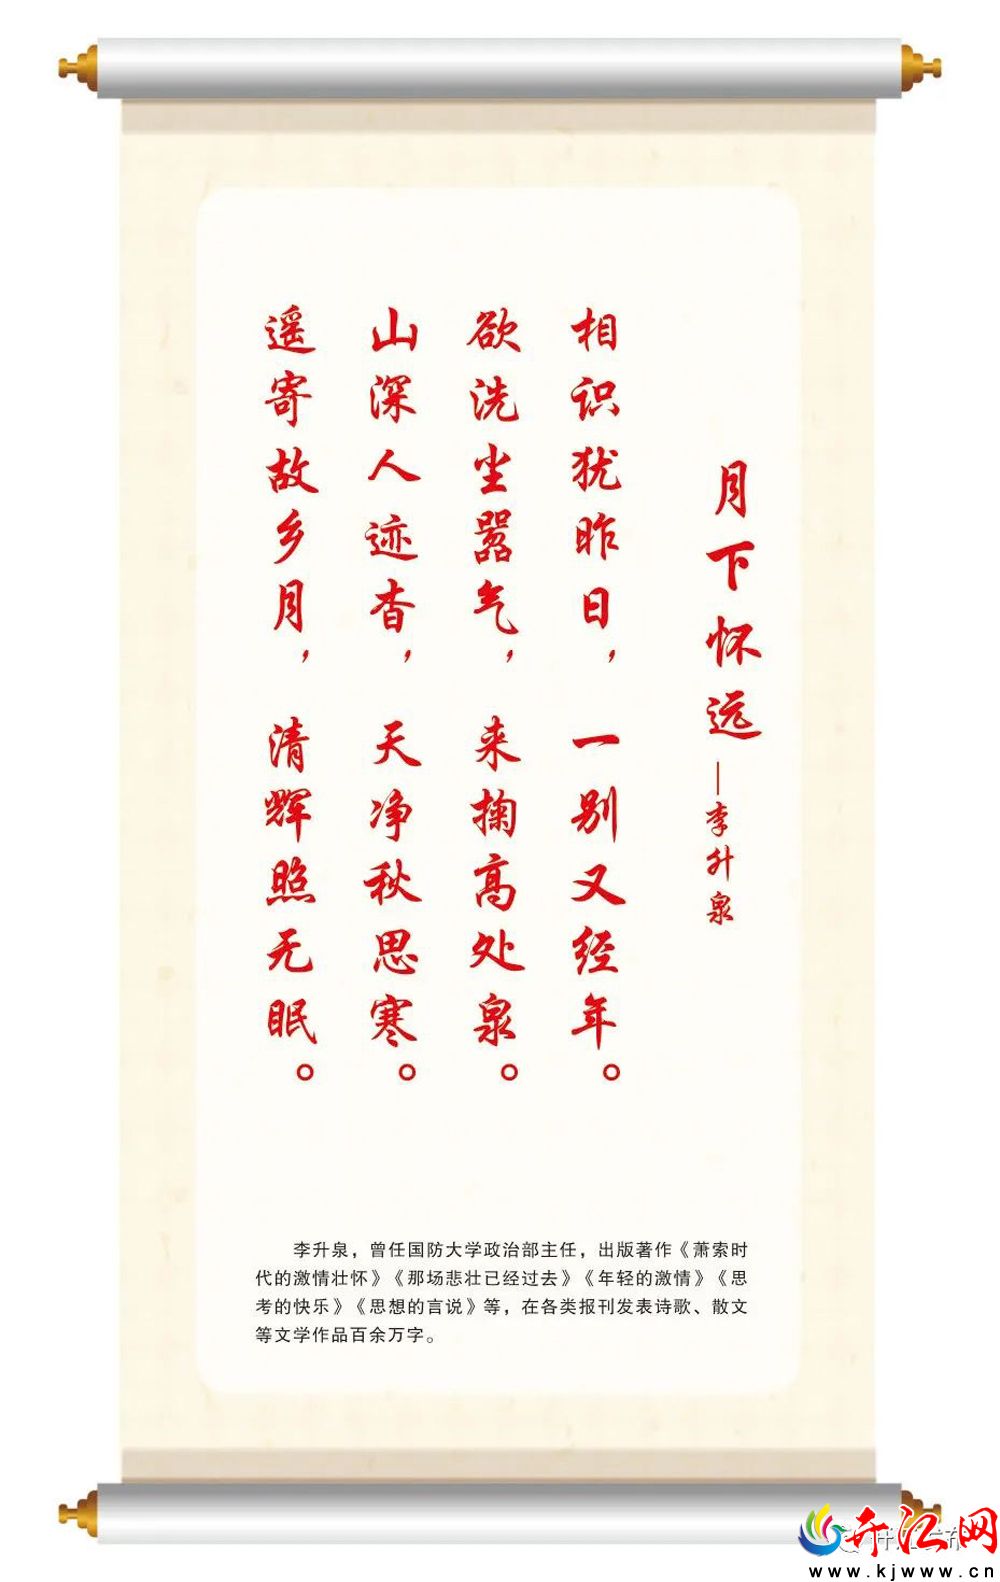 月下怀远
—李升泉
相识犹昨日，一别又经年。
欲洗尘嚣气，来掬高处泉。
山深人迹杳，天净秋思寒。
遥寄故乡月，清辉照无眠。
李升泉，曾任国防大学政治部主任，出版著作《萧索时
代的激情壮怀》《那场悲壮已经过去》《年轻的激情》《思
考的快乐》《思想的言说》等，在各类报刊发表诗歌、散文
等文学作品百余万字。
开江网
www.kjwww.cn